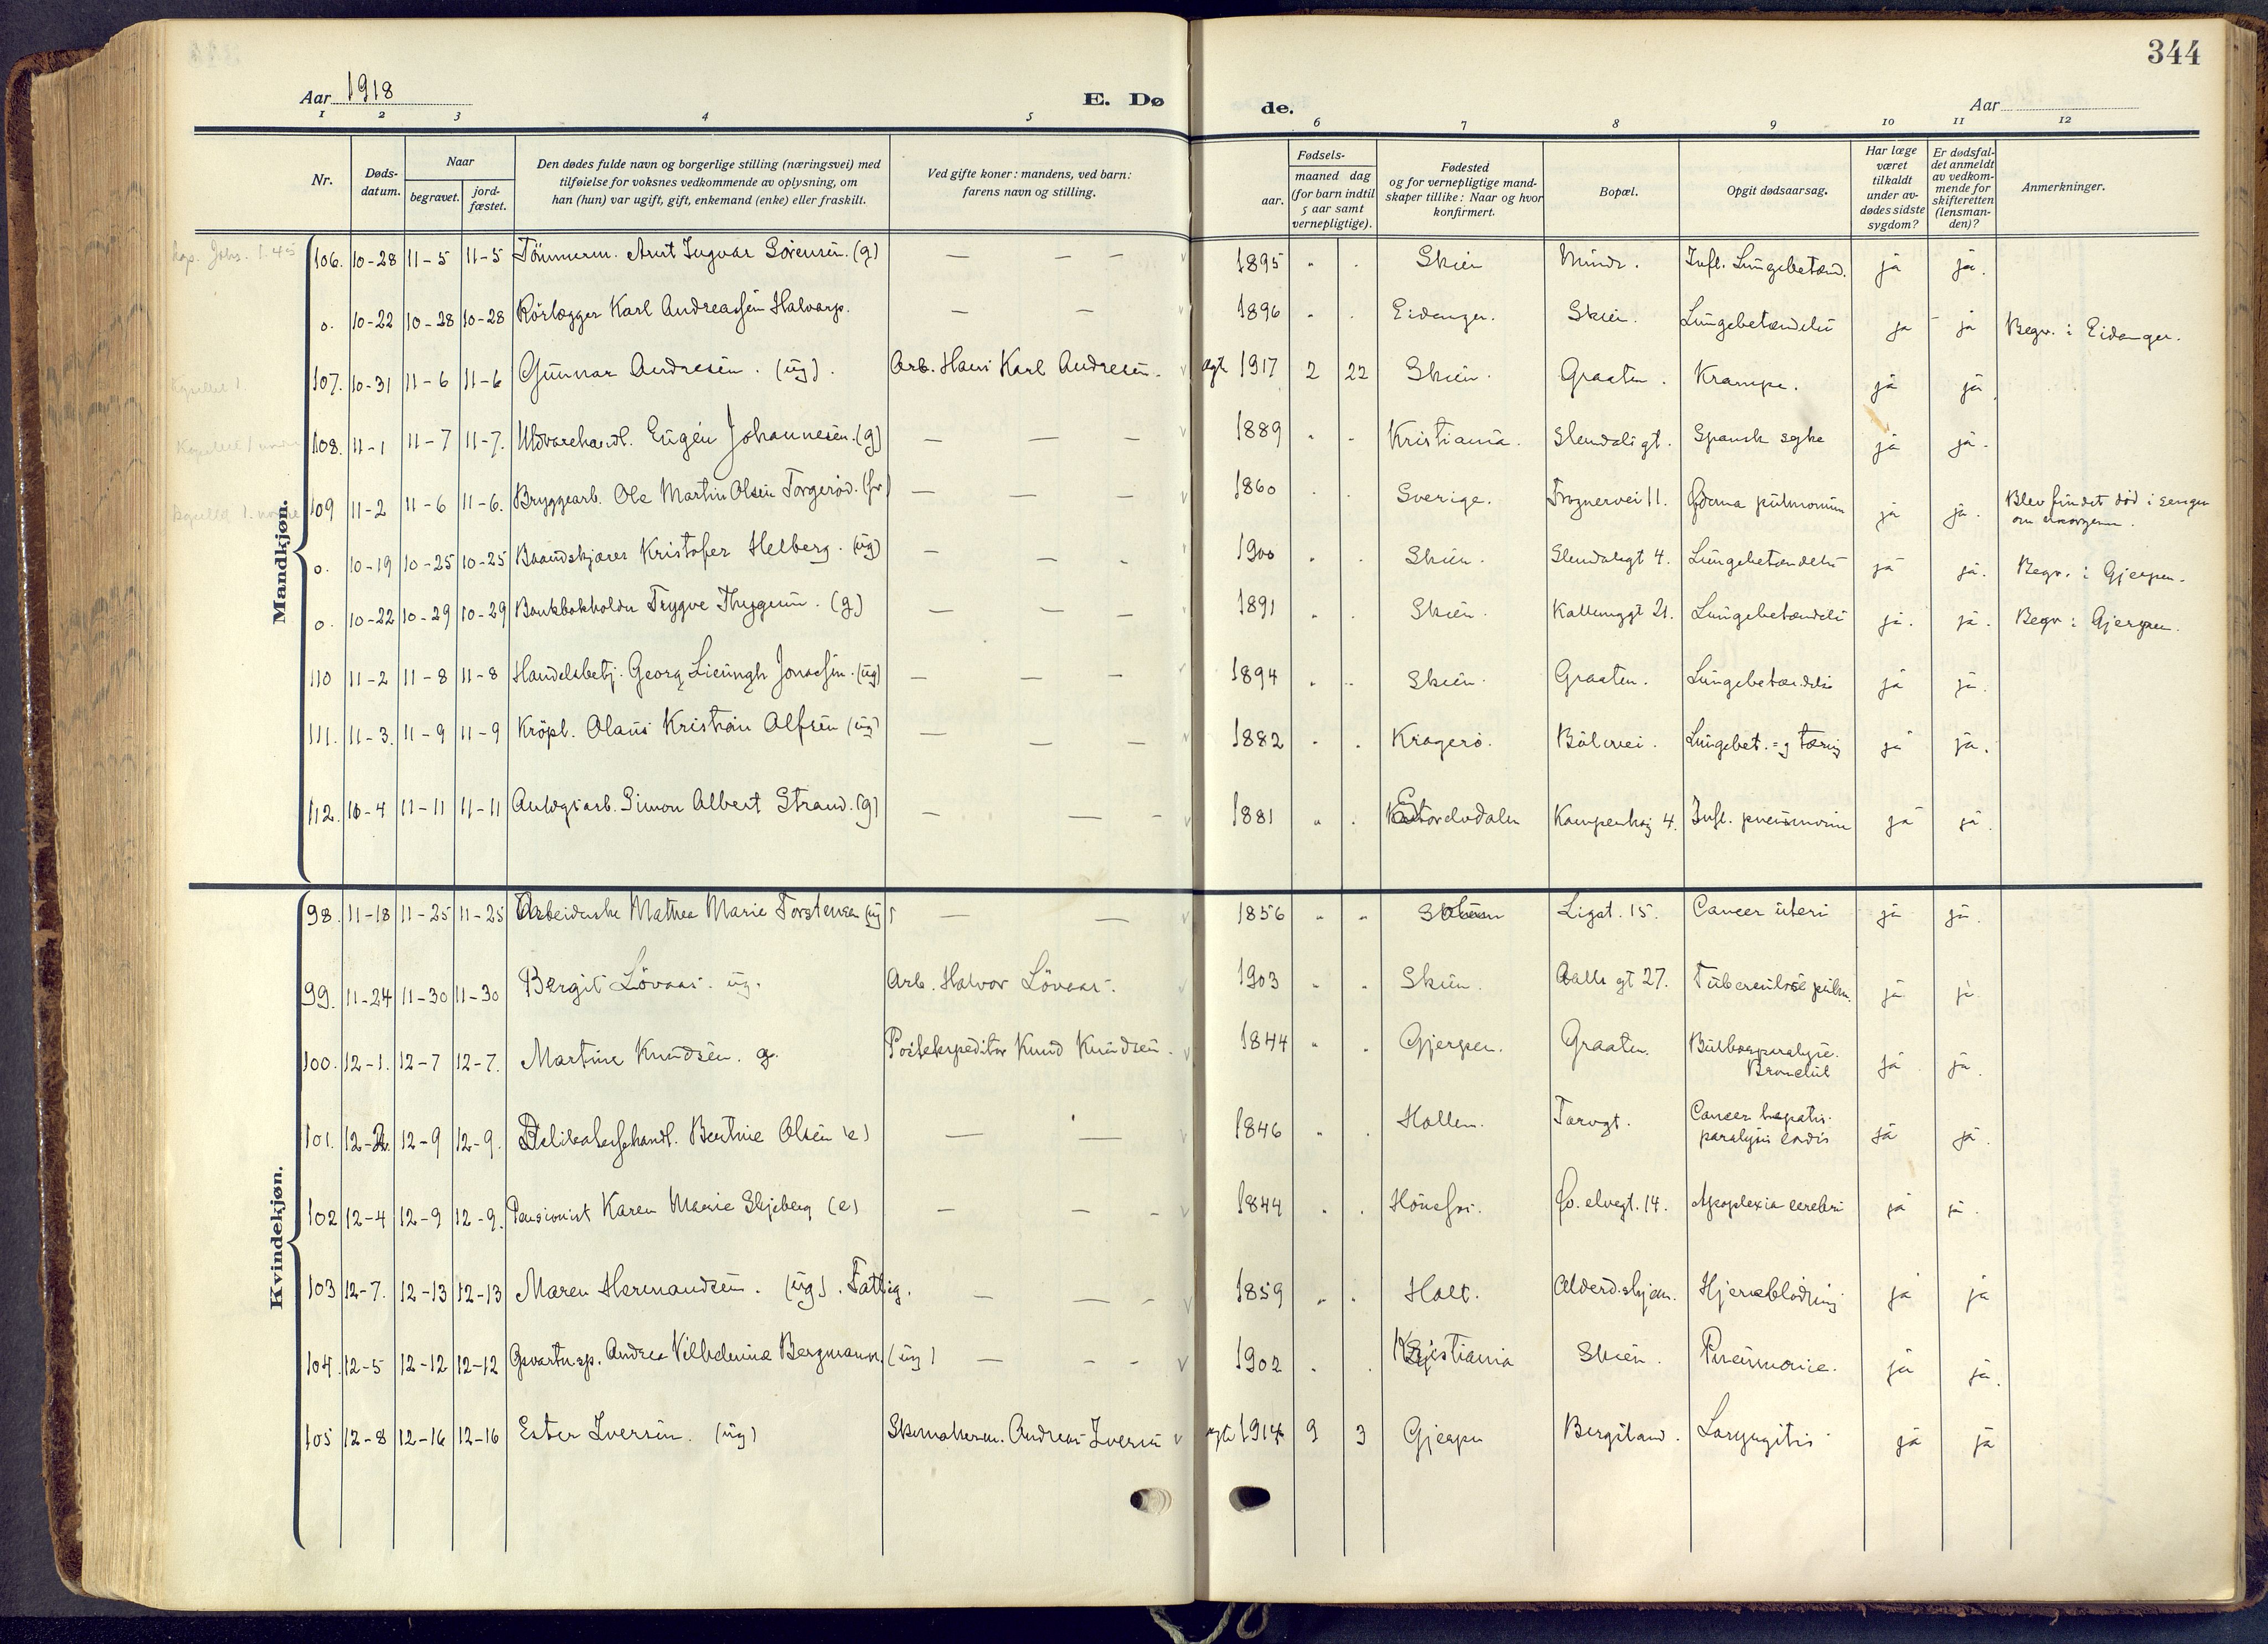 344
Aar 1918
E. Dø
de.
Aar
1 2 3 4 5 6 7 8 9 10 11 12
Nr.
Døds-
datum.
Naar
begravet.
jord-
fæstet.
Den dødes fulde navn og borgerlige stilling (næringsvei) med
tilføielse for voksnes vedkommende av oplysning, om
han (hun) var ugift, gift, enkemand (enke) eller fraskilt.
Ved gifte koner: mandens, ved barn:
farens navn og stilling.
Fødsels-
aar.
maaned dag
(for barn indtil
5 aar samt
vernepligtige).
Fødested
og for vernepligtige mand-
skaper tillike: Naar og hvor
konfirmert.
Bopæl.
Opgit dødsaarsag.
Har læge
været
tilkaldt
under av-
dødes sidste
sygdom?
Er dødsfal-
det anmeldt
av vedkom-
mende for
skifteretten
(lensman-
den)?
Anmerkninger.
Mandkjøn.
106. 10-28 11-5 11-5 Tömmerm. Arnt Ingvar Sörensen. (g) — — — 1895 " . Skien Mindr. Infl. Lungebetænd. ja ja.
o. 10-22 10-28 10-28 Rörlægger Karl Andreassen Halvarp. — — 1896 " . Eidanger. Skien. Lungebetændelse ja ja Begr. i Eidanger.
107. 10-31 11-6 11-6 Gunnar Andresen. (ug). Arb. Hans Karl Andresen. egt. 1917 2 22 Skien. Graaten. Krampe. ja ja
108. 11-1 11-7 11-7. Utvarehandl. Eugén Johannesen. (g) — — — 1889 " . Kristiania. Slemdalsgt. Spansk syke ja ja.
109 11-2 11-6 11-6. Bryggearb. Ole Martin Olsen Torgeröd. — — — 1860 . . Sverige. Frognervei 11. Ödema pulmonum ja ja. Blev fundet död i sengen
om morgenen.
o. 10-19 10-25 10-25 Baandskjærer Kristofer Helberg. (ug) — — . 1900 . . Skien. Slemdalsgt 4. Lungebetændelse ja ja. Begr. i Gjerpen.
o. 10-22 10-29 10-29 Bankbokholder Trygve Thygesen. (g) — — — 1891 " . Skien. 21. Lungebetændelse ja. ja. Begr i Gjerpen.
110 11-2 11-8 11-8 Handelsbetj. Georg Lieungh Jonassen. (ug) — — — 1894 . .. Skien. Graaten. Lungebetændelse ja ja.
111. 11-3. 11-9 11-9 Kröpl. Olaus Kristian Alfsen (ug) — — — 1882 . . Kragerö. Bölevei. Lungebet. og tæring ja ja.
112. 10-4 11-11 11-11 Anlægsarb. Simon Albert Strand. (g) — — - 1881 " . Storelvdalen Kampenhaug 4. Infl. pneumonie ja ja.
Kvindekjøn.
98. 11-18 11-25 11-25 Arbeiderske Mathea Marie Torstensen (ug) — — 1856 " " Solum Ligat. 15. Cancer uteri ja ja.
99. 11-24 11-30 11-30 Bergit Lövaas. ug. Arb. Halvor Lövaas. 1903 " " Skien. 27. Tuberculose pulm. ja ja
100. 12-1. 12-7 12-7. Martine Knudsen. g. Postekspeditör Knud Knudsen. 1844 " . Gjerpen. Graaten. Bulbærparalyse.
Bronchit ja ja.
101. 12-2. 12-9 12-9. Delikatessehandl. Bertine Olsen (e) — — 1846 " . Hollen. Torvgt. Cancer hepatis.
paralysis cordis ja ja.
102 12-4 12-9 12-9. Pensionist Karen Marie Skjeberg (e) — — - 1844 . . Hönefos. elvegt. 14. Apoplexia cerebri ja ja.
103 12-7. 12-13 12-13 Maren Hermandsen. (ug). Fattig. — — - 1859 " . Holt. Alderd.shjem. Hjerneblödning ja ja
104. 12-5 12-12 12-12 Andrea Vilhelmine Bergmann. (ug) — - - 1902 . . Kristiania Skien. Pneumonie. ja ja.
105 12-8 12-16 12-16 Ester Iversen. (ug) Skomakerm. Andreas Iversen egte 1914 9 3 Gjerpen Bergsland. Laryngitis ja ja